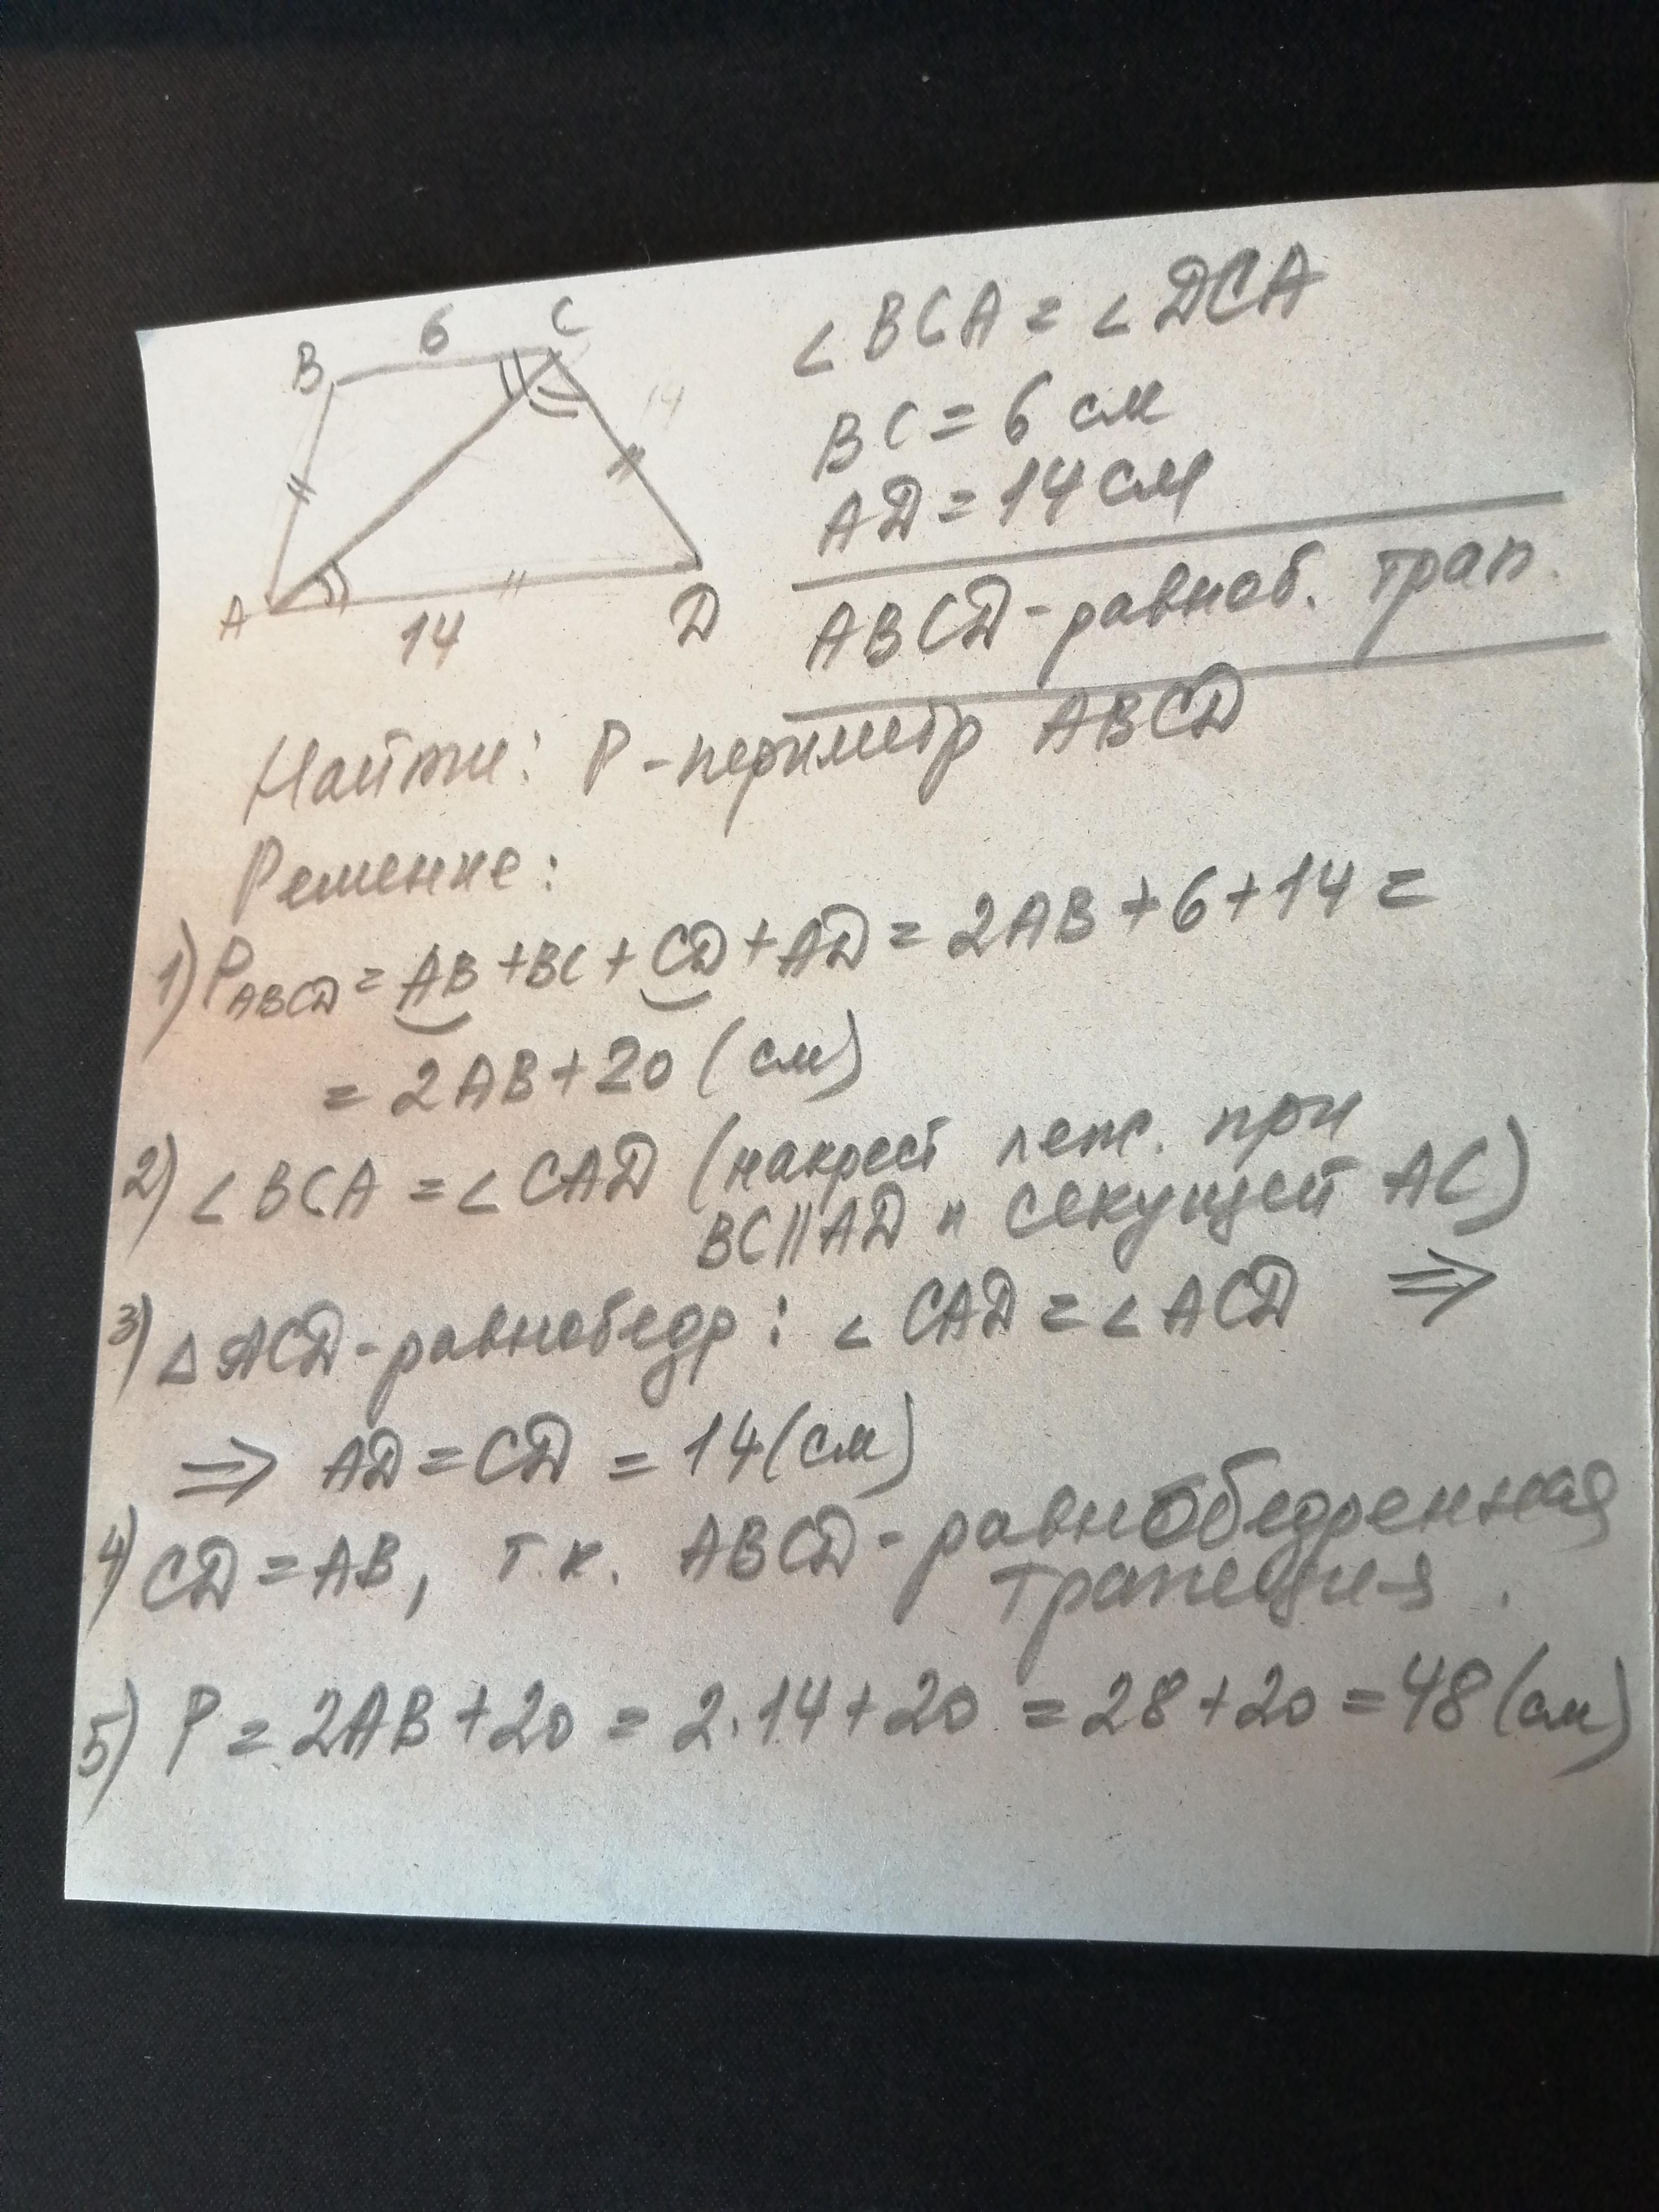 B
6
C
14
A
14
D
∠ BCA = ∠ DCA
BC = 6 см
AD = 14 см
ABCD - равноб. трап.
Найти: P - периметр ABCD
Решение:
1) P ABCD = AB + BC + CD + AD = 2AB + 6 + 14 =
= 2AB + 20 (см)
2) ∠ BCA = ∠ CAD (накрест леж. при
BC || AD и секущей AC)
3) △ ACD - равнобедр: ∠ CAD = ∠ ACD ⇒
⇒ AD = CD = 14 (см)
4) CD = AB, т.к. ABCD - равнобедренная
трапеция.
5) P = 2AB + 20 = 2·14 + 20 = 28 + 20 = 48 (см)